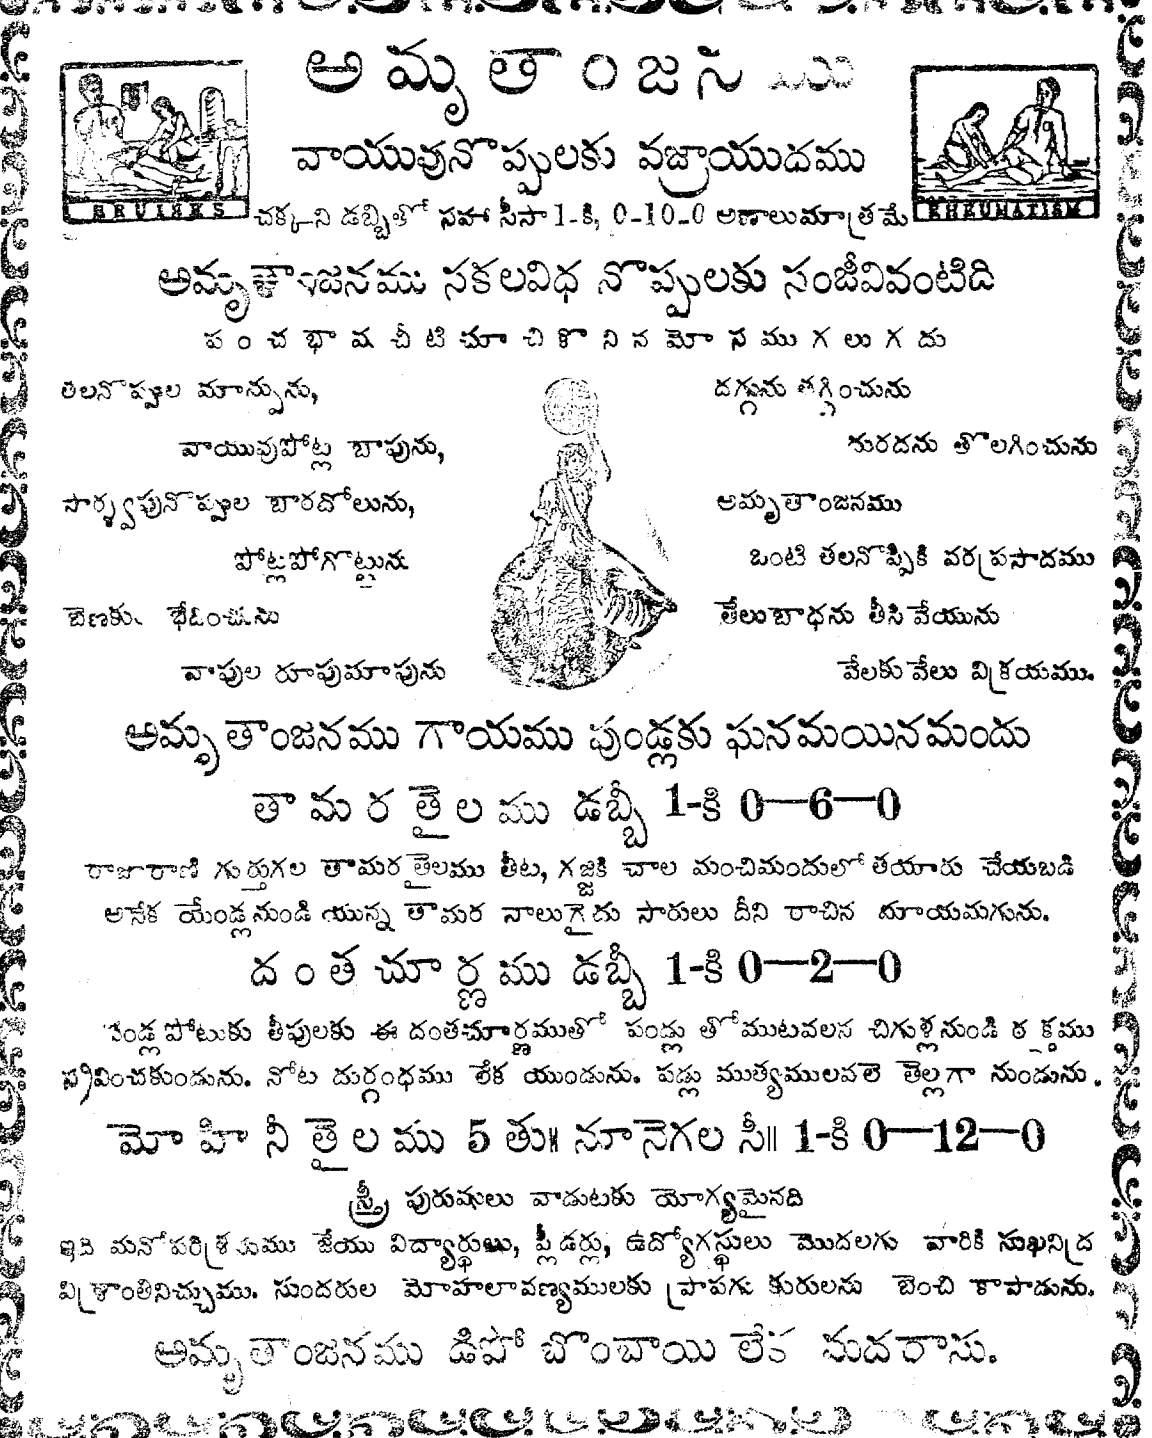 అమృతాంజనము
వాయువునొప్పులకు వజ్రాయుదము
BRUISES
చక్కని డబ్బితో సహా సీసా 1-కి, 0-10-0 అణాలుమాత్రమే
RHEUMATISM
అమృతాంజనము సకలవిధ నొప్పులకు సంజీవివంటిది
పంచభాషచీటిచూచికొనినమోసముగలుగదు
తలనొప్పుల మాన్పును,
వాయువుపోట్ల బాపును,
పార్శ్వపునొప్పుల బారదోలును,
పోట్లపోగొట్టును
బెణకు
వాపుల రూపుమాపును
దగ్గును తగ్గించును
దురదను తొలగించును
అమృతాంజనము
ఒంటి తలనొప్పికి వరప్రసాదము
తేలుబాధను తీసివేయును
వేలకువేలు విక్రయము.
అమృతాంజనము గాయము పుండ్లకు ఘనమయినమందు
తామరతైలము డబ్బీ 1-కి 0—6—0
రాజారాణి గుర్తుగల తామరతైలము తీట, గజ్జికి చాల మంచిమందులో తయారు చేయబడి
అనేక యేండ్లనుండి యున్న తామర నాలుగైదు సారులు దీని రాచిన మాయమగును.
దంతచూర్ణము డబ్బీ 1-కి 0—2—0
పోటుకు తీపులకు ఈ దంతచూర్ణముతో పండ్లు తోముటవలన చిగుళ్లనుండి రక్తము
స్రవించకుండును. నోట దుర్గంధము లేక యుండును. పడ్లు ముత్యములవలె తెల్లగా నుండును.
మోహినీతైలము 5 తు॥ నూనెగల సీ॥ 1-కి 0—12—0
స్త్రీ పురుషులు వాడుటకు యోగ్యమైనది
ఇది మనోపరిశ్రమము జేయు విద్యార్థులు, ప్లీడర్లు, ఉద్యోగస్థులు మొదలగు వారికి సుఖనిద్ర
విశ్రాంతినిచ్చుము. సుందరుల మోహలావణ్యములకు ప్రాపగు కురులను బెంచి కాపాడును.
అమృతాంజనము డిపో బొంబాయి లేక మదరాసు.